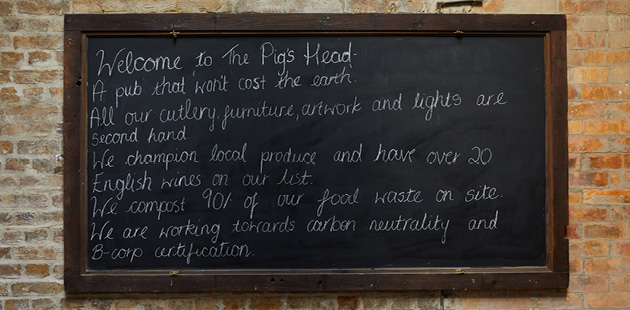 Welcome to The Pig's Head
A pub that won't cost the earth.
All our cutlery, furniture, artwork and lights are
second hand
We champion local produce and have over 20
English wines on our list.
We compost 90% of our food waste on site.
We are working towards carbon neutrality and
B-corp certification.